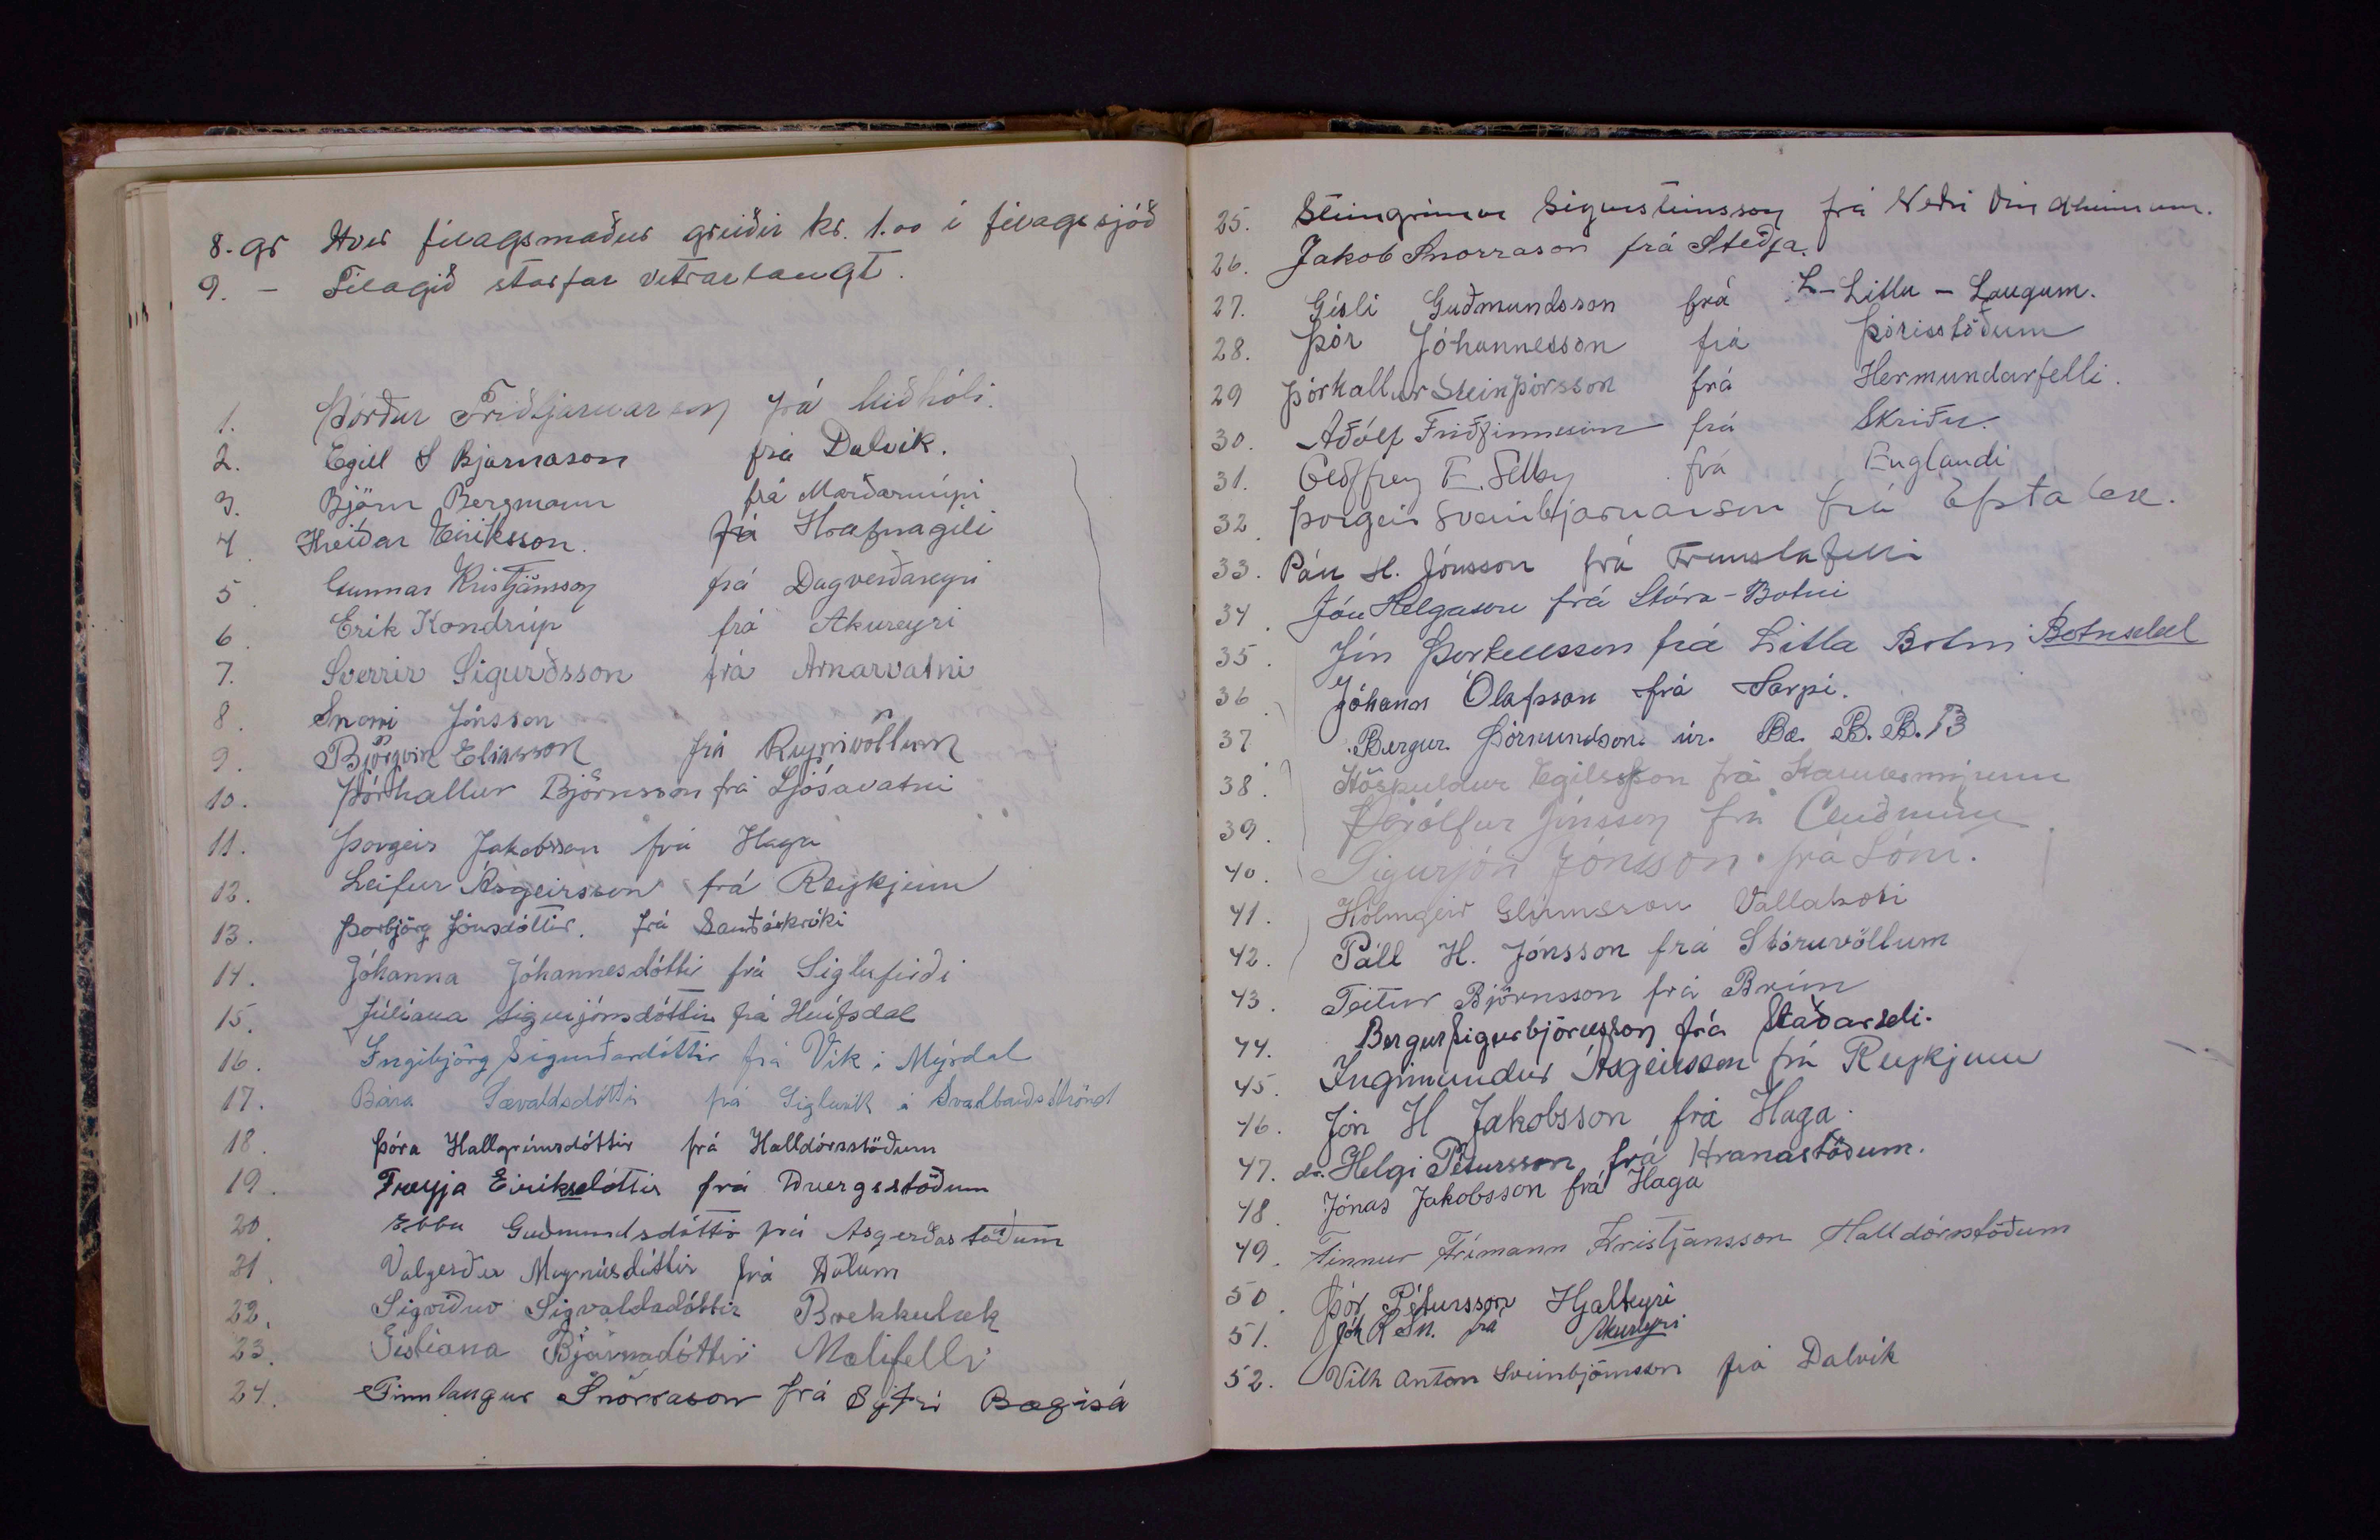 8. gr Hver félagsmaður greiðir kr. 1.00 í félagssjóð
9. — Félagið starfar vetrarlangt.
1. Þórður Friðbjarnarson frá
2. Egill S Bjarnason frá Dalvík.
3. Björn Bergmann frá Marðarnúpi
4. Hreiðar Eiríksson. frá Hrafnagili
5. Gunnar Kristjánsson frá Dagverðareyri
6. Erik Kondrúp frá Akureyri
7. Sverrir Sigurðsson frá Arnarvatni
8. Snorri Jónsson
9. Björgvin Elíasson frá Reynivöllum
10. Þórhallur Björnsson frá Ljósavatni
11. Þorgeir Jakobsson frá Haga
12. Leifur Ásgeirsson frá Reykjum
13. Þorbjörg Jónsdóttir. frá Sauðárkróki
14. Jóhanna Jóhannesdóttir frá Siglufirði
15. Júlíana Sigurjónsdóttir frá Hnífsdal
16. Ingibjörg Sigurðardóttir frá Vík í Mýrdal
17. Bára Sævaldsdóttir frá Sigluvík á Svalbarðsströnd
18. Þóra Hallgrímsdóttir frá Halldórsstöðum
19. Freyja Eiríksdóttir frá Dvergsstöðum
20. Ebba Guðmundsdóttir frá Asgerðastöðum
21. Valgerður Magnúsdóttir frá Dölum
22. Sigríður Sigvaldadóttir Brekkulæk
23. Gísliana Bjarnadóttir Mælifelli
24. Finnlaugur Snorrason frá Syðri Bægisá
25. Steingrímur Sigursteinsson frá Neðri Vindheimum.
26. Jakob Snorrason frá Steðja.
27. Gísli Guðmundsson frá L- Litlu - Laugum.
28. Þór Jóhannesson frá Þórisstöðum
29 Þórhallur Steinþórsson frá Hermundarfelli.
30. Aðólf Friðfinnsson frá Skriðu.
31. Geoffrey E. Selby frá Englandi
32. Þorgeir Sveinbjarnarson frá Efsta bæ.
33. Páll H. Jónsson frá Fremstafelli
34. Jón Helgason frá Stóra-Botni
35. Jón Þorkelsson frá Litla Botni Botnsdal
36. Jóhann Ólafsson frá Sarpi.
37. Bergur Þórmundson. úr. Bæ. B. B. B
38. Höskuldur Egilsson frá
39. Þórólfur Jónsson frá Auðnum
40. Sigurjón Jónsson. frá Lóni.
41. Hólmgeir Glúmsson Vallakoti
42. Páll H. Jónsson frá Stóruvöllum
43. Teitur Björnsson frá Brún
44. Bergur Sigurbjörnsson frá Staðarseli.
45. Ingimundur Ásgeirsson frá Reykjum
46. Jón H Jakobsson frá Haga.
47. dr. Helgi Pétursson frá Hranastöðum.
48. Jónas Jakobsson frá Haga
49. Finnur Frímann Kristjánsson Halldórsstöðum
50. Þór Pétursson Hjalteyri
51. Jóh R Sn. frá Akureyri
52. Vilh Anton Sveinbjörnsson frá Dalvík